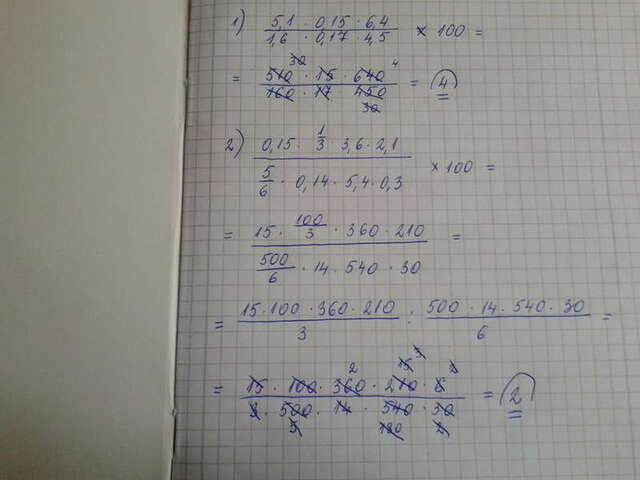 1) 5,1 · 0,15 · 6,4 / 1,6 · 0,17 · 4,5 × 100 =
30 4
= 510 · 15 · 640 / 160 · 17 450 = 4
30
2) 0,15 · 1/3 3,6 · 2,1 / 5/6 · 0,14 · 5,4 · 0,3 × 100 =
= 15 · 100/3 · 360 · 210 / 500/6 · 14 · 540 · 30 =
= 15 · 100 · 360 · 210 / 3 : 500 · 14 · 540 · 30 / 6 =
2 15 3
= 15 · 100 · 360 · 210 · 6 / 3 · 500 · 14 · 540 · 30 = 2
5 180